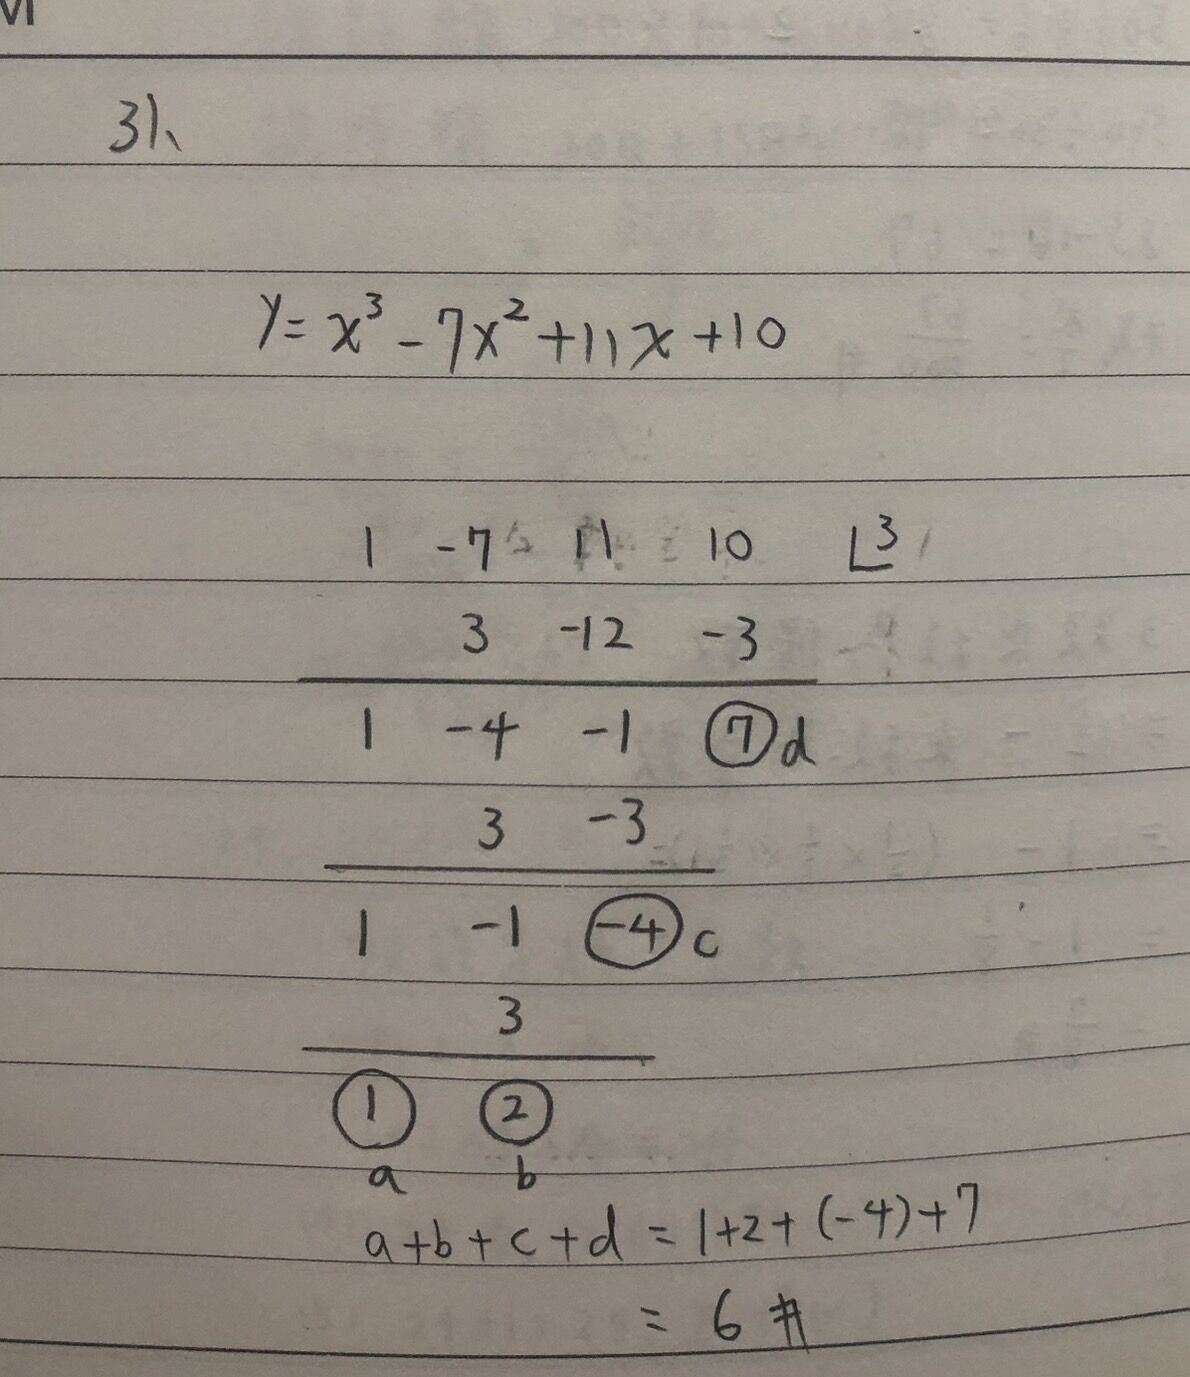 31、
y = x³ - 7x² + 11x + 10
1 -7 11 10 ⌊3
3 -12 -3
1 -4 -1 ⑦ d
3 -3
1 -1 (-4) c
3
① ②
a b
a+b+c+d = 1+2+(-4)+7
= 6 #